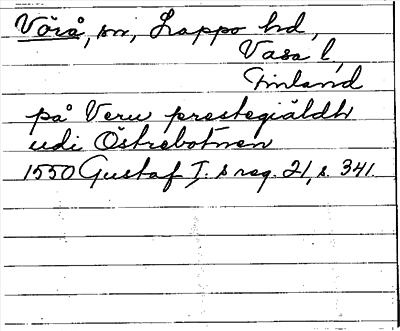 Vörå, sn, Lappo hd,
Vasa l,
Finland
på Veru prestegiäldh
udi Östrebotnen
1550 Gustaf I. s reg. 21, s. 341.